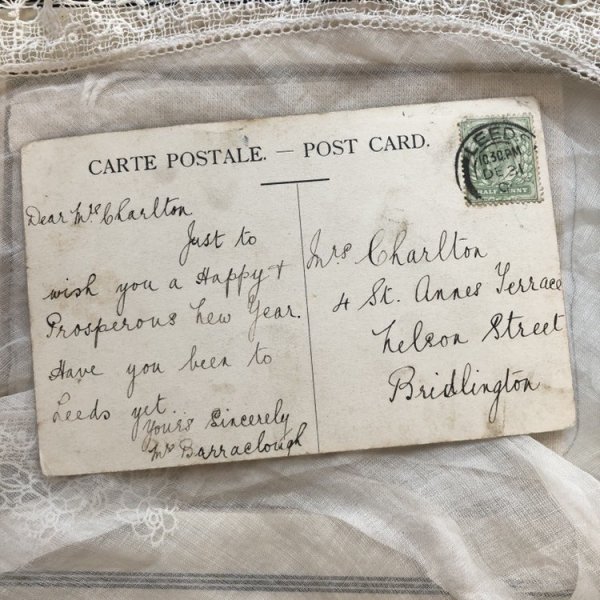 CARTE POSTALE. — POST CARD.
LEEDS
10.30 PM
DE 31
HALFPENNY
Dear Mrs Charlton
Just to
wish you a Happy &
Prosperous New Year.
Have you been to
Leeds yet...
Yours Sincerely
Barraclough
Mrs Charlton
4 St. Annes Terrace
Nelson Street
Bridlington